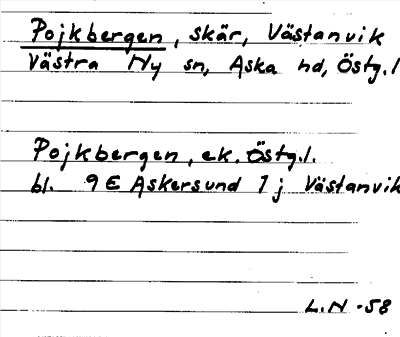 Pojkbergen, skär, Västanvik
Västra Ny sn, Aska hd, Östg.l
Pojkbergen, ek. Östg.l.
bl. 9E Askersund 1j Västanvik
L.N -58